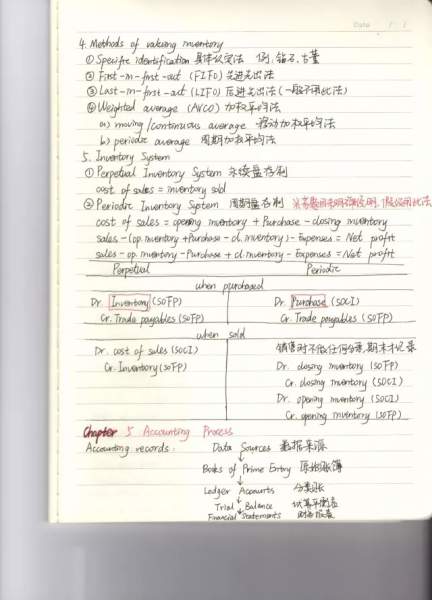 Date
4. Methods of valuing inventory
① Specific identification 具体认定法 例, 钻石, 古董
② First-in-first-out (FIFO) 先进先出法
③ Last-in-first-out (LIFO) 后进先出法 (一般不用此法)
④ Weighted average (AVCO) 加权平均法
a) moving/continuous average 移动加权平均法
b) periodic average 周期加权平均法
5. Inventory System
① Perpetual Inventory System 永续盘存制
cost of sales = inventory sold
② Periodic Inventory System 周期盘存制
cost of sales = opening inventory + Purchase - closing inventory
sales - (op. inventory + Purchase - cl. inventory) - Expenses = Net profit
sales - op. inventory - Purchase + cl. inventory - Expenses = Net profit
Perpetual Periodic
when purchased
Dr. Inventory (SOFP) Dr. Purchase (SOCI)
Cr. Trade payables (SOFP) Cr. Trade payables (SOFP)
when sold
Dr. cost of sales (SOCI) 销售时不做任何分录, 期末才记录
Cr. Inventory (SOFP) Dr. closing inventory (SOFP)
Cr. closing inventory (SOCI)
Dr. opening inventory (SOCI)
Cr. opening inventory (SOFP)
Chapter 5 Accounting Process
Accounting records: Data Sources 数据来源
↓
Books of Prime Entry 原始账簿
↓
Ledger Accounts 分类账
↓
Trial Balance 试算平衡表
↓
Financial Statements 财务报表